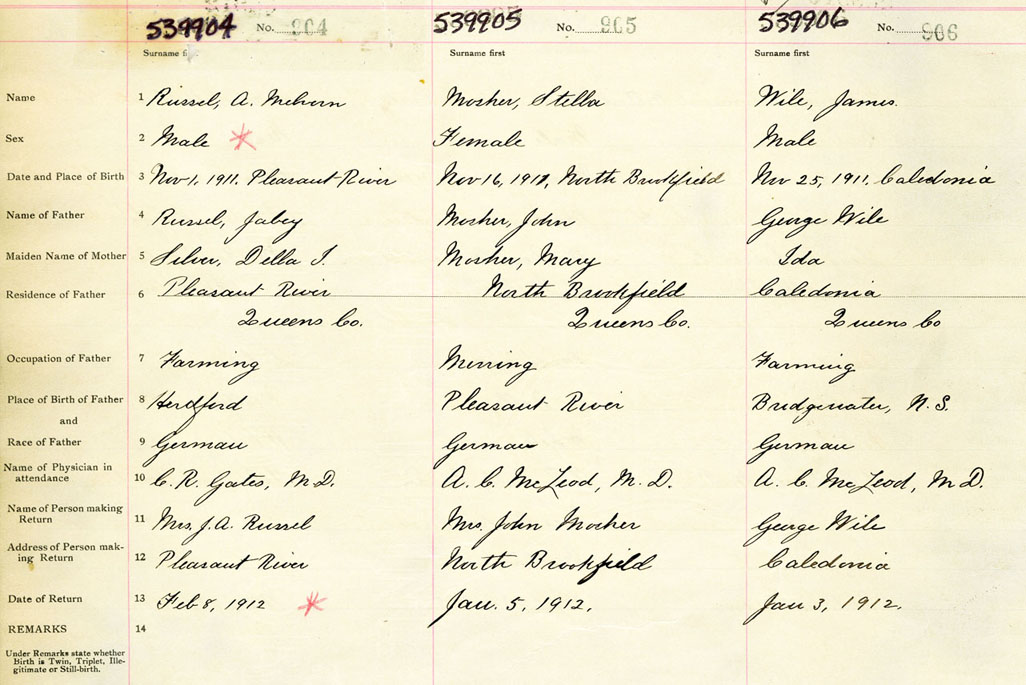 539904 No. 904 539905 No. 905 539906 No. 906
Surname fi Surname first Surname first
Name 1 Russel, A. Melvern Mosher, Stella Wile, James.
Sex 2 Male Female Male
Date and Place of Birth 3 Nov 1, 1911. Pleasant River Nov 16, 1911, North Brookfield Nov 25, 1911, Caledonia
Name of Father 4 Russel, Jabey Mosher, John George Wile
Maiden Name of Mother 5 Silver, Della I. Mosher, Mary Ida
Residence of Father 6 Pleasant River North Brookfield Caledonia
Queens Co. Queens Co. Queens Co
Occupation of Father 7 Farming Mining Farming
Place of Birth of Father 8 Hardford Pleasant River Bridgewater, N.S.
and
Race of Father 9 German German German
Name of Physician in
attendance 10 C. R. Gates, M.D. A. C. McLeod, M.D. A. C. McLeod, M D.
Name of Person making
Return 11 Mrs. J. A. Russel Mrs. John Mosher George Wile
Address of Person mak-
ing Return 12 Pleasant River North Brookfield Caledonia
Date of Return 13 Feb 8, 1912 Jan. 5, 1912. Jan 3, 1912.
REMARKS 14
Under Remarks state whether
Birth is Twin, Triplet, Ille-
gitimate or Still-birth.